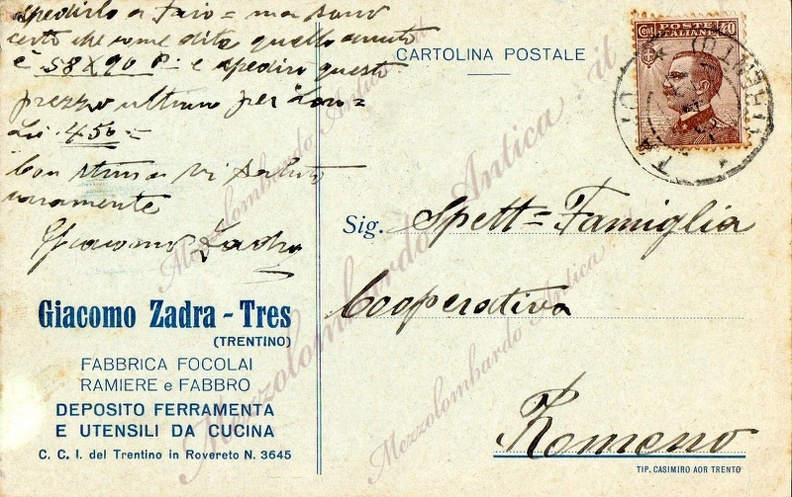 spedirlo a Taio = ma sono
certo che come dito quello avuto
è 58X90 P. e spedirò questo
prezzo ultimo per Loro =
Li 456 =
Con stima Vi Saluto
caramente
Giacomo Zadra
Giacomo Zadra - Tres
(TRENTINO)
FABBRICA FOCOLAI
RAMIERE e FABBRO
DEPOSITO FERRAMENTA
E UTENSILI DA CUCINA
C. C. I. del Trentino in Rovereto N. 3645
CARTOLINA POSTALE
POSTE
ITALIANE
Cmi 40
TAIO (TRENTO)
Sig. Spett = Famiglia
Cooperativa
Romeno
TIP. CASIMIRO AOR TRENTO
Mezzolombardo Antica.it
Mezzolombardo Antica
Mezzolombardo Antica